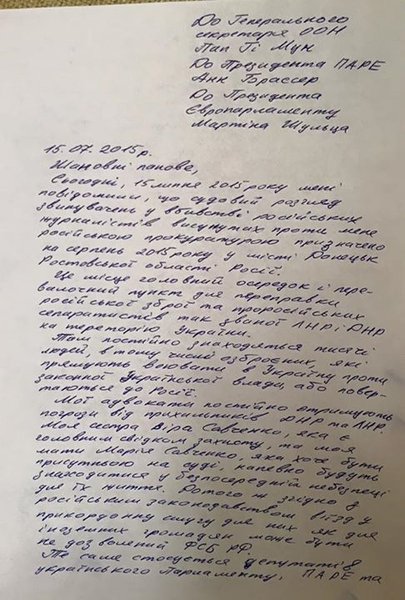 До Генерального
секретаря ООН
Пан Гі Мун
До Президента ПАРЕ
Анн Брассер
До Президента
Європарламенту
Мартіна Шульца
15.07.2015р.
Шановні панове,
Сьогодні, 15 липня 2015 року мені
повідомили, що судовий розгляд
звинувачень у вбивстві російських
журналістів висунутих проти мене
російською прокуратурою призначено
на серпень 2015 року у місті Донецьк
Ростовської області Росії.
Це місце головний осередок і пере-
валочний пункт для переправки
російської зброї та проросійських
сепаратистів так званої ЛНР і ДНР
на територію України.
Там постійно знаходяться тисячі
людей, в тому числі озброєних, які
прямують воювати в Україну проти
законної Української влади, або повер-
таються до Росії.
Мої адвокати постійно отримують
погрози від прихильників ДНР та ЛНР.
Моя сестра Віра Савченко, яка є
головним свідком захисту та моя
мати Марія Савченко, яка хоче бути
присутньою на суді, напевно будуть
знаходитися у безпосередній небезпеці
для їх життя. До того ж згідно з
російським законодавством в'їзд у
прикордонну смугу для них як для
іноземних громадян може бути
не дозволений ФСБ РФ.
Те саме стосується депутатів
українського Парламенту, ПАРЕ та